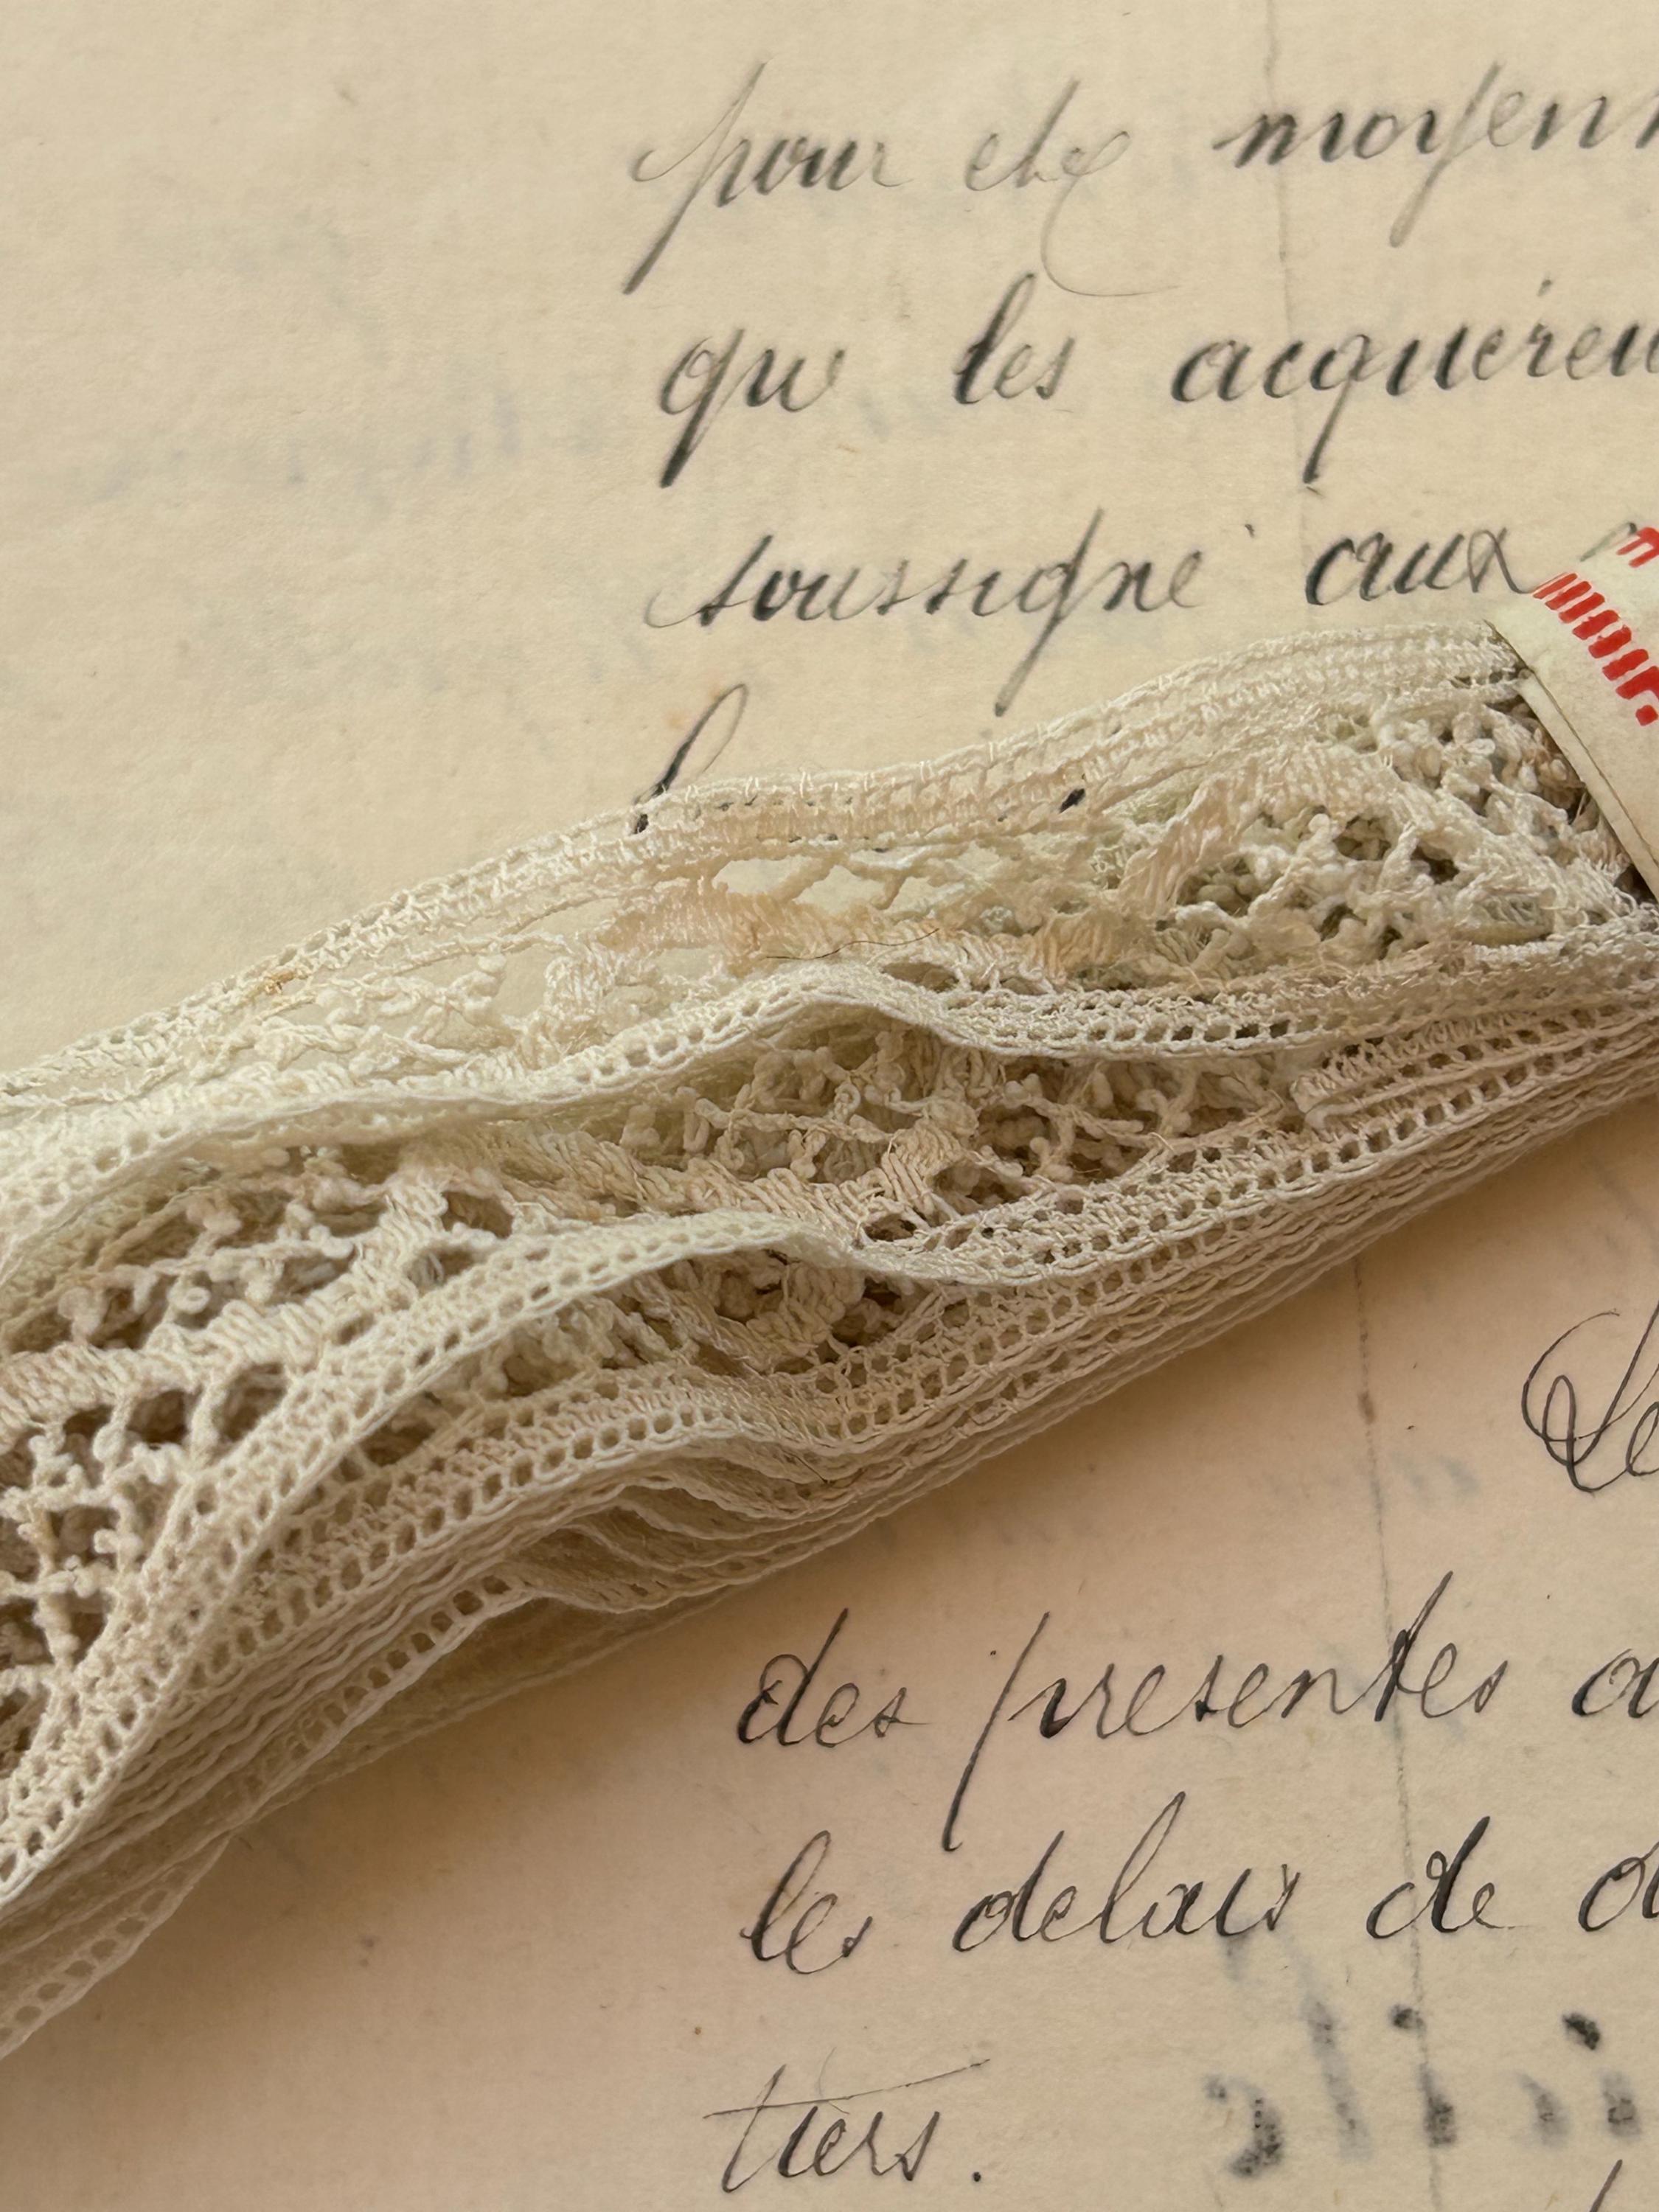 pour elle moyenn
que les acquéreu
soussigné aux
l
Le
des presentes a
les delais de d
tiers.